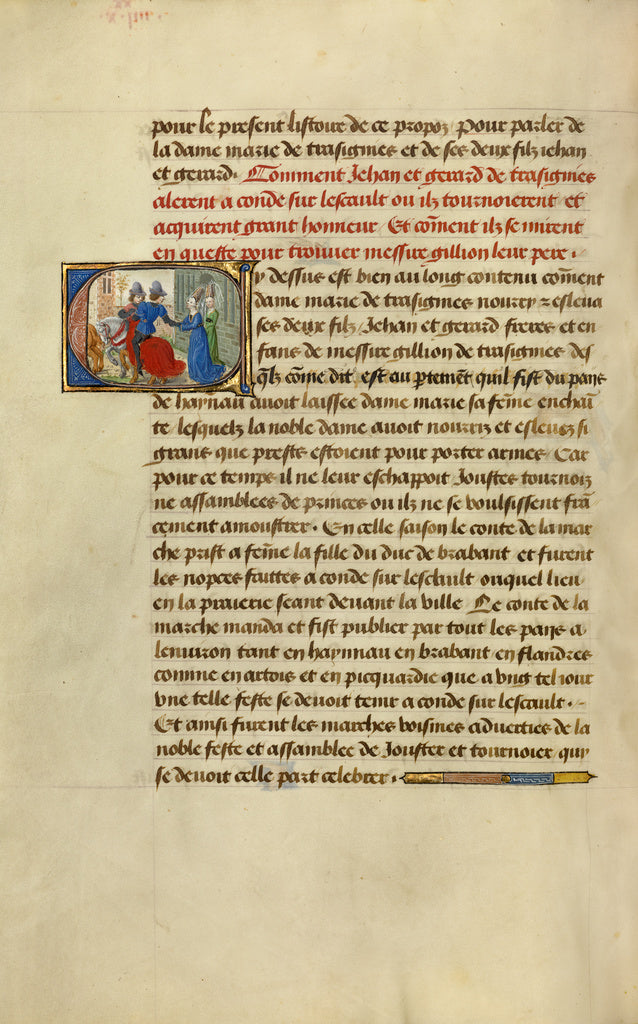 pour le present listoire de ce propoz Pour parler de
la dame marie de trasignies et de ses deux filz iehan
et gerard. Comment Jehan et gerard de trasignies
alerent a conde sur lescault ou ilz tournoierent et
acquirent grant honneur Et com̄ent ilz se mirent
en queste pour trouver messire gillion leur pere.
Cy dessus est bien au long contenu com̄ent
dame marie de trasignies nourry z esleua
ses deux filz Jehan et gerard freres et en
fans de messire gillion de trasignies des
qlz cōme dit est au ptement quil fist du pays
de haynau auoit laissee dame marie sa fēme enchai
te lesquelz la noble dame auoit nourriz et esleuez si
grans que prestz estoient pour porter armes Car
pour ce temps il ne leur eschappoit Joustes tournoiz
ne assamblees de princes ou ilz ne se voulsissent frā
cement amoustrer. En celle saison le conte de la mar
che prist a fēme la fille du duc de brabant et furent
les nopces faittes a conde sur lescault ouquel lieu
en la praierie seant deuant la ville Le conte de la
marche manda et fist publier par tout les pays a
lenuiron tant en haynnau en brabant en flandres
comme en artois et en picquardie que a vng tel iour
vne telle feste se deuoit tenir a conde sur lescault.
Et ainsi furent les marches voisines aduerties de la
noble feste et assamblee de Jouster et tournoier quy
se deuoit celle part celebrer.